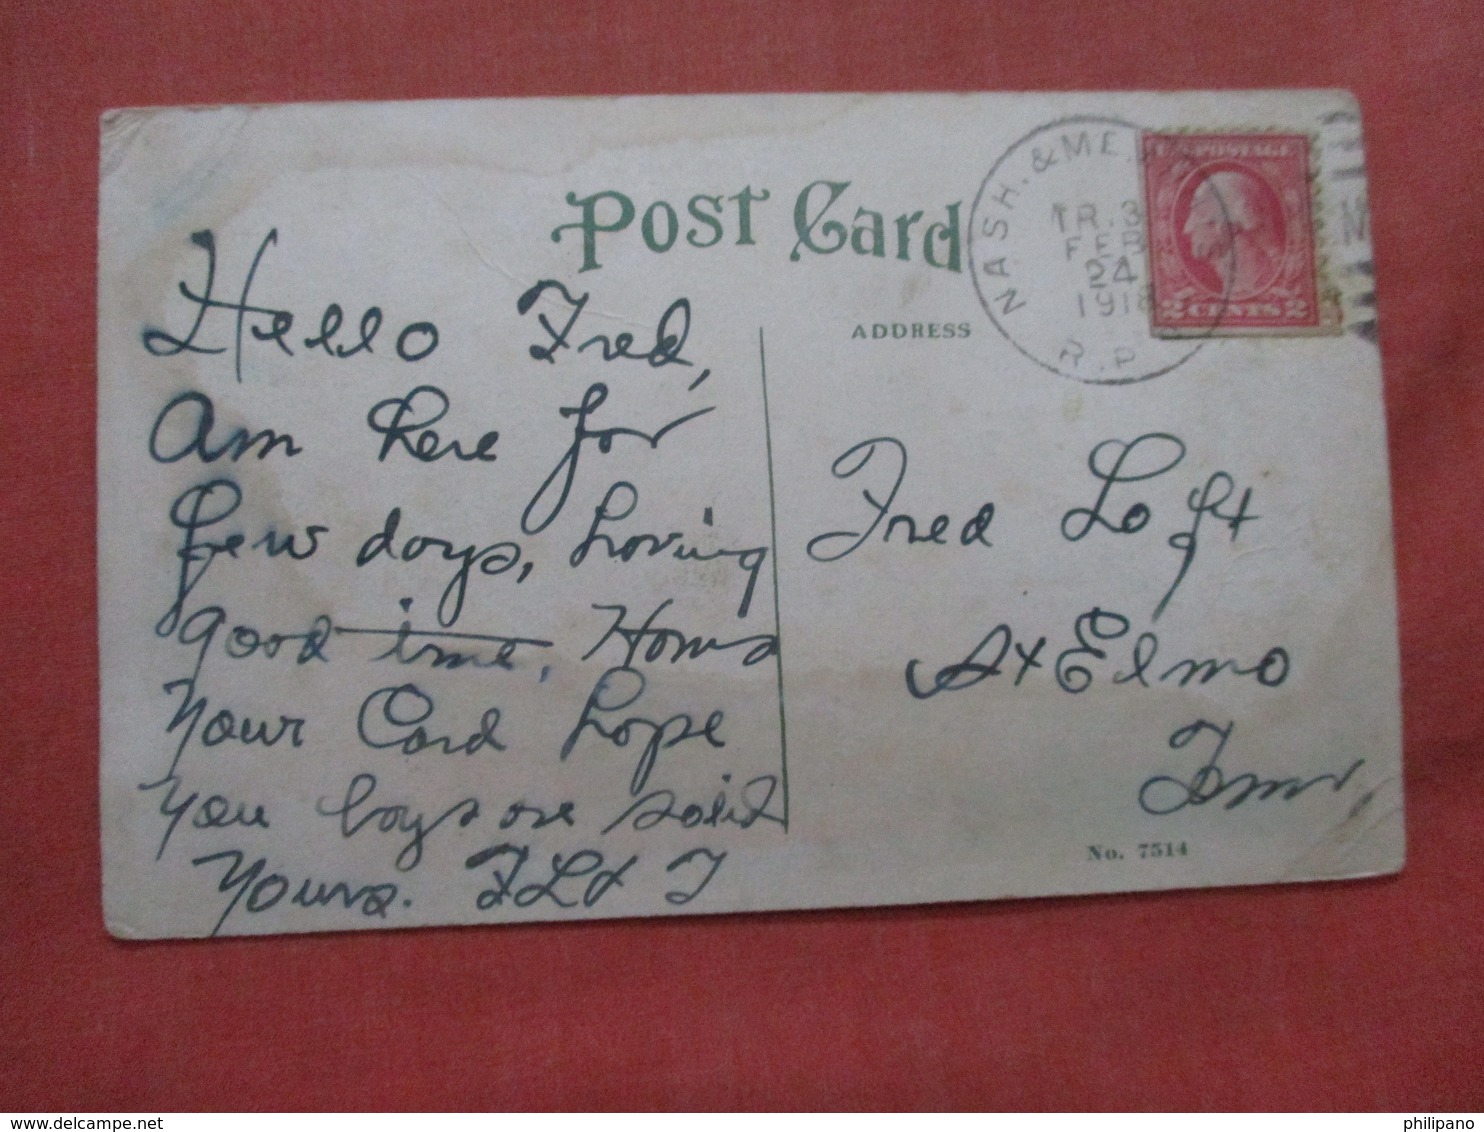 POST CARD
ADDRESS
NASH. & MEM
TR. 3
FEB
24
1918
R.P.O.
U.S. POSTAGE
2 CENTS 2
Hello Fred,
Am here for
few days, having
good time,
Your Card hope
You boys are solid
Yours.
Fred Loft
St Elmo
Tenn
No. 7514
philipano
delcampe.net